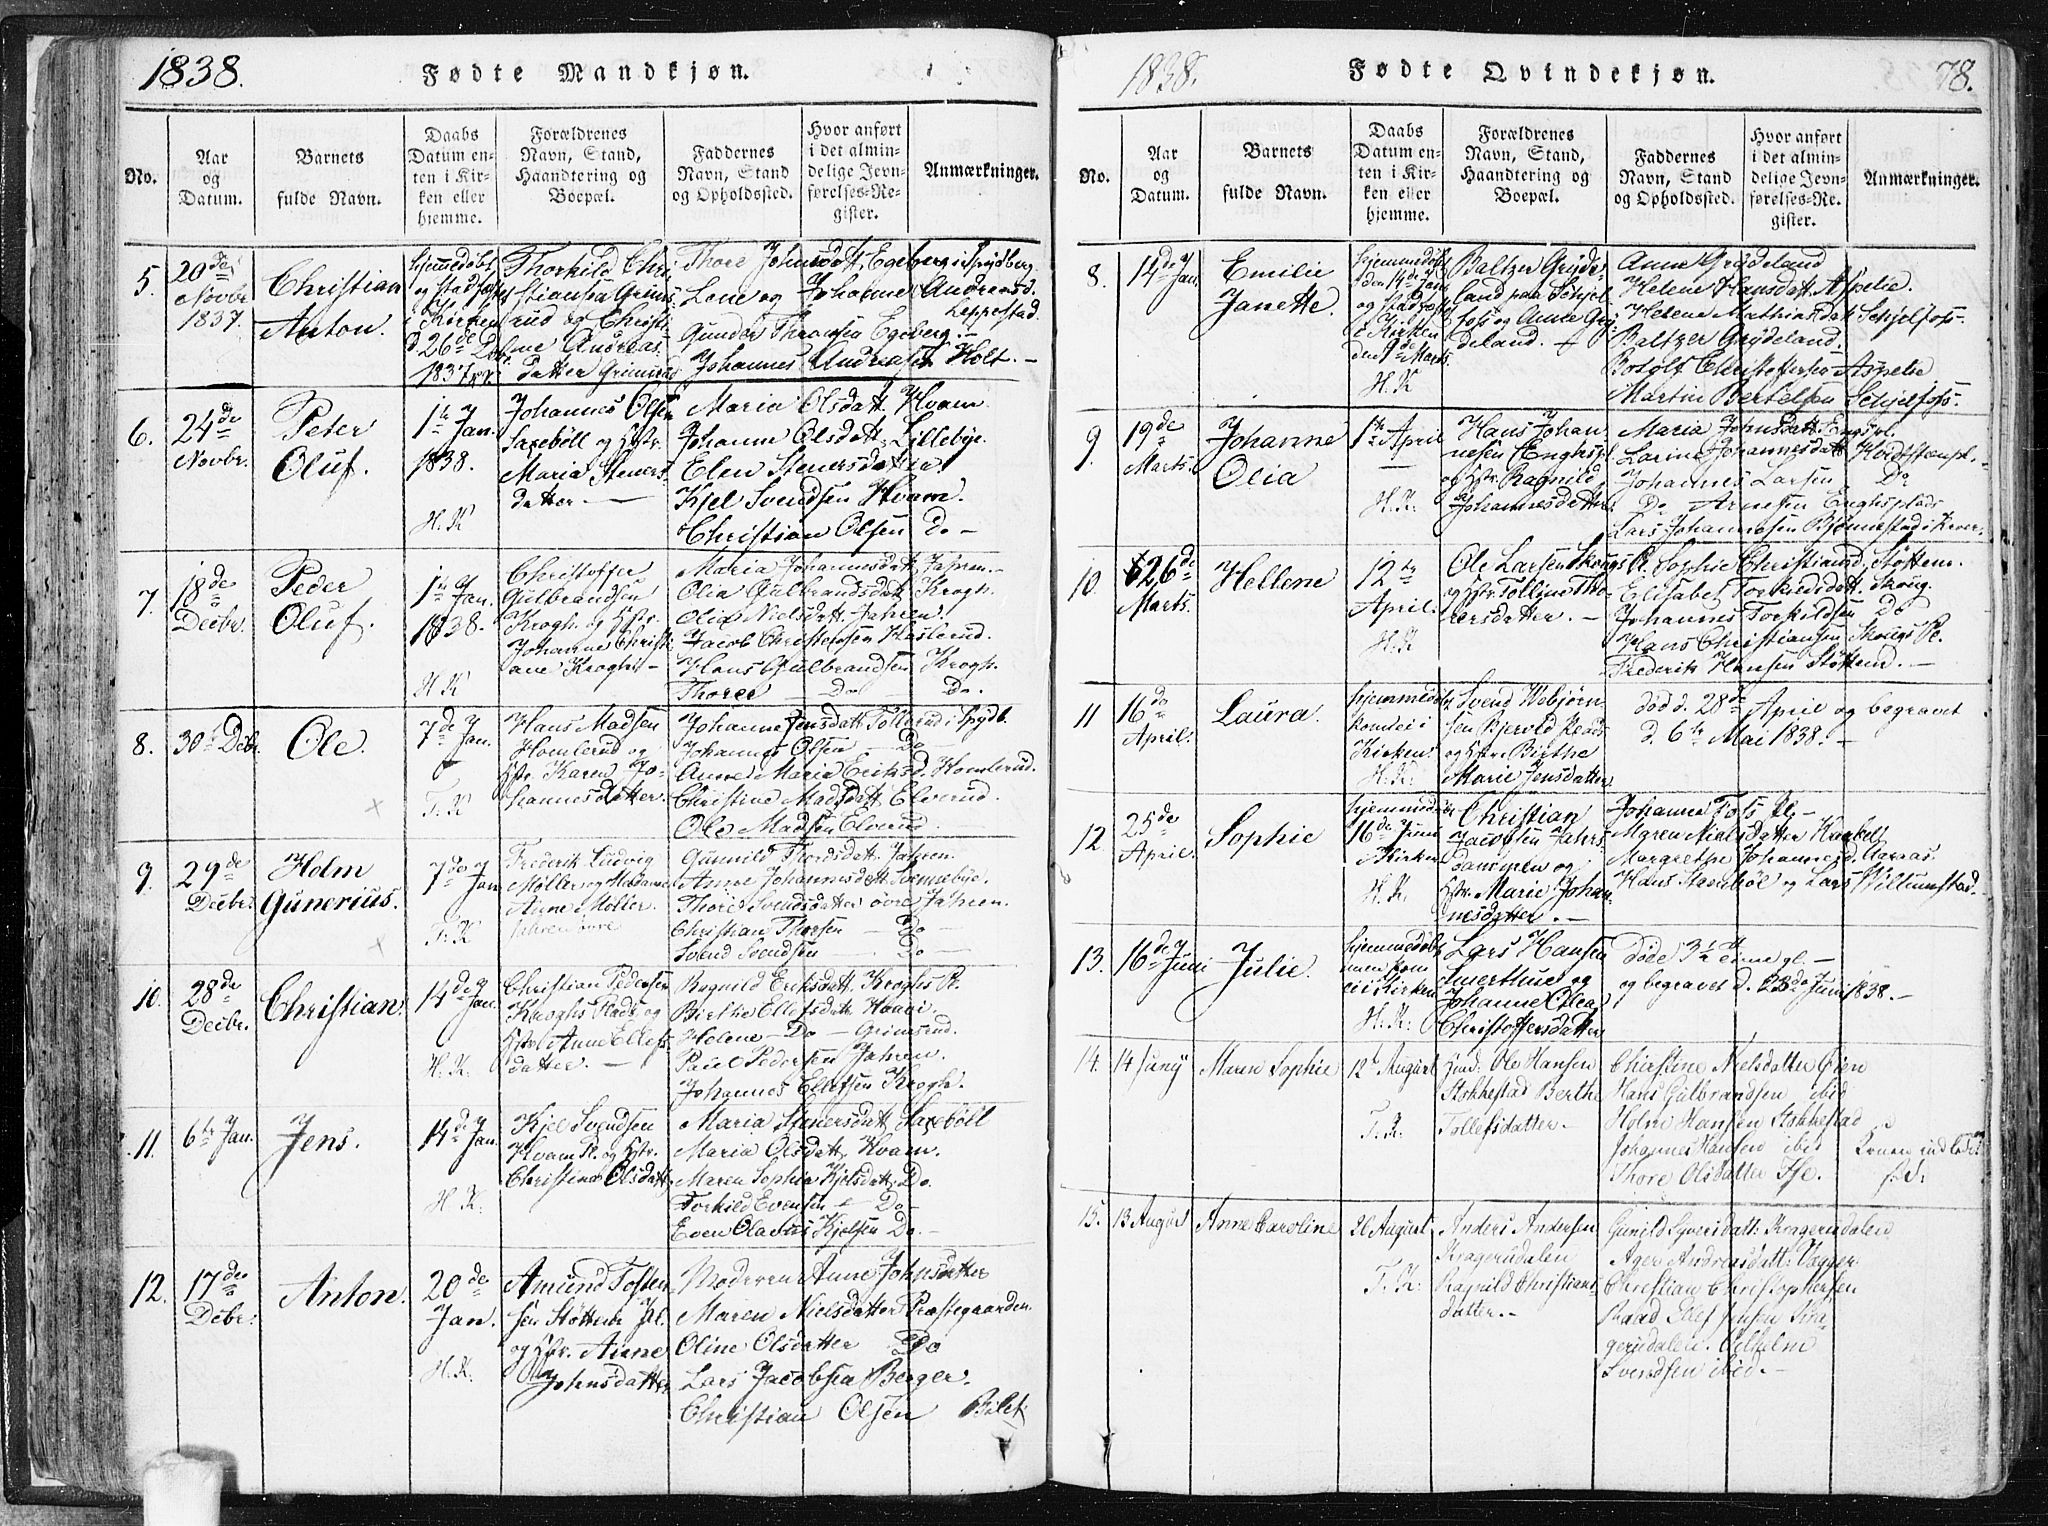 1838.
Fødte Mandkjøn.
No.
Aar og Datum.
Barnets fulde Navn.
Daabs Datum enten i Kirken eller hjemme.
Forældrenes Navn, Stand, Haandtering og Boepæl.
Faddernes Navn, Stand og Opholdssted.
Hvor anført i det almindelige Jevnførelses-Register.
Anmærkninger.
5.
20de
Novbr
1837.
Christian
Anton.
hjemmedøbt
og stadfæstet
i Kirken
d. 26de
1837
Thorkild Chri
stiansen Grims
rud og Christi
ne Andreas
datter Grimsrud
Thore Johnsdatt. Egeberg i Spydberg
Lene og Johanne Andreasd.
Leppestad.
Gunder Thoresen Egeberg.
Johannes Andreasen Holt. –
6.
24de
Novbr.
Peter
Oluf.
1te Jan.
1838.
H. K
Johannes Olsen
Saxebøll og Hstr.
Maria Steners
datter. —
Maria Olsdatt. Hvam.
Johanne Olsdatt. Lillebye.
Elen Stenersdatter
Kjel Svendsen Hvam.
Christian Olsen Do –
7.
18de
Decbr.
Peder
Oluf.
1te Jan.
1838.
H. K
Christoffer
Gulbrandsen
Krogh. og Hstr.
Johanne Christi
ane Kroghs –
Maria Johannesdatt. Jahren. –
Olia Gulbrandsdatt. Krogh.
Olia Nielsdatt. Jahren.
Jacob Christensen Haslerud.
Hans Gulbrandsen Krogh.
Thorer — Do — Do.
8.
30te Decbr.
Ole.
7de Jan.
F. K
Hans Madsen
Homlerud og
Hstr. Karen Jo-
hannesdatter.
Johanne Jensdatt. Tollerud i Spydb.
Johannes Olsen — Do
Anne Maria Eriksd. Homlerud.
Christine Madsdatt. Elverud.
Ole Madsen Elverud.
9.
29de
Decbr.
Holm
Gunerius.
7de Jan
F. K
Frederik Ludvig
Møller og Madame
Anne Møller.
Jahren øvre
Gunnild Thordsdatt. Jahren.
Anne Johannesdatt. Svennebye.
Thore Svendsdatter øvre Jahren.
Christian Thorsen — Do —
Svend Svendsen — Do —
10.
28de
Decbr.
Christian.
14de Jan.
H. K.
Christian Pedersen
Kroghs Plads og
Hstr. Anne Ellefs
datter. —
Ragnild Eriksdatt. Kroghs Pl.
Birthe Ellefsdatt. Hvam.
Helene – Do – Grimsrud.
Paul Pedersen Jahren.
Johannes Ellefsen Krogh.
11.
6te Jan.
Jens.
14de Jan.
H. K.
Kjel Svendsen
Hvam Pl. og Hstr.
Christine Olsdatt.
Maria Stenersdatt. Saxebøll
Maria Olsdatt. Hvam.
Maren Sophia Kjelsdatt. Do.
Torkild Evensen – Do –
Even Olavus Kjelsen Do. –
12.
17de
Decbr.
Anton.
20de
Jan.
H. K.
Amund Tosten
sen Støttum Pl.
og Hstr. Anne
Johnsdatter
Moderen Anne Johnsdatter
Maren Nielsdatter Præstegaarden.
Oline Olsdatter Do
Lars Jacobsen Berger.
Christian Olsen Bilet
1838.
Fødte Qvindekjøn.
78.
No.
Aar og Datum.
Barnets fulde Navn.
Daabs Datum enten i Kirken eller hjemme.
Forældrenes Navn, Stand, Haandtering og Boepæl.
Faddernes Navn, Stand og Opholdssted.
Hvor anført i det almindelige Jevnførelses-Register.
Anmærkninger.
8.
14de Jan.
Emilie
Janette.
hjemmedøbt
den 14de Jan
og stadfæstet
i Kirken
den 9de Marts
H. K
Baltzer Gryde-
land paa Schjel
foss og Anne Gry
deland.
Anne Grydeland
Helene Hansdatt. Aspelie.
Helene Mathiasdatt. Schjelfoss.
Baltzer Grydeland.
Botolf Christoffersen Aspelie
Martin Bertelsen Schjelfoss.
9.
19de
Marts.
Johanne
Olia
1te April
H. K.
Hans Johan
nesen Enghspl.
og Hstr. Ragnild
Johannesdatter.
Maria Johnsdatt. Engspl.
Larine Johannesdatt. Hvidstenspl.
Johannes Larsen Do
Do Arnesen Enghsplads
Lars Johannesen Bjønnestad i Krer.
10.
26de
Marts.
Hellene
12te
April.
H. K
Ole Larsen Skougs Pl.
og Hstr. Tolline Tho-
rersdatter. –
Sophie Christiansd. Støttem.
Elisabet Torkildsdatt. Skoug.
Johannes Torkildsen Do
Hans Christiansen Skougs Pl.
Frederik Hansen Støttend. –
11
16de
April.
Laura.
hjemmedøbt
kom ei i
Kirken.
H. K.
Svend Webjørn
sen Bjervold Plads
og Hstr. Birthe
Marie Jensdatter.
død d. 28de April og begravet
d. 6te Mai 1838. –
12.
25de
April.
Sophie
hjemmedøbt
16de Juni
i Kirken
H. K.
Christian
Jacobsen Jahrs
og
Hstr. Marie Johan
nesdatter. –
Johanne Foss Pl. –
Maren Nielsdatter
Margrethe Johannesd. Aaraas.
Hans Stenbøl og Lars Villumstad.
13.
16de Juni
Julie.
hjemmedøbt
men kom
ei i Kirken
H. K:
Lars Hansen
og
Johanne Olea
Christoffersdatter
Døde
og begravet d. 23de Juni 1838. –
14.
14 Junij
Maren Sophie
12t August
T. K:
Ole Hansen
Stokkestad Berthe
Tollefsdatter –
Christine Nielsdatter Øien
Hans Gulbrandsen ibid
Holm Hansen Stokkestad
Johannes Hansen ibid
Thore Olsdatter
Konen indledet
s. d.
15.
13 August
Anne Caroline
26 August
T. K:
Anders Andersen
Kragerudalen
Ragnild Christians
datter. –
Gunild Syversdatt: Kragerudalen
Ager Andreasdatt:
Christian Christophersen
Raad Ellef Jensen Kra-
gerudalen.
Svendsen ibid. –